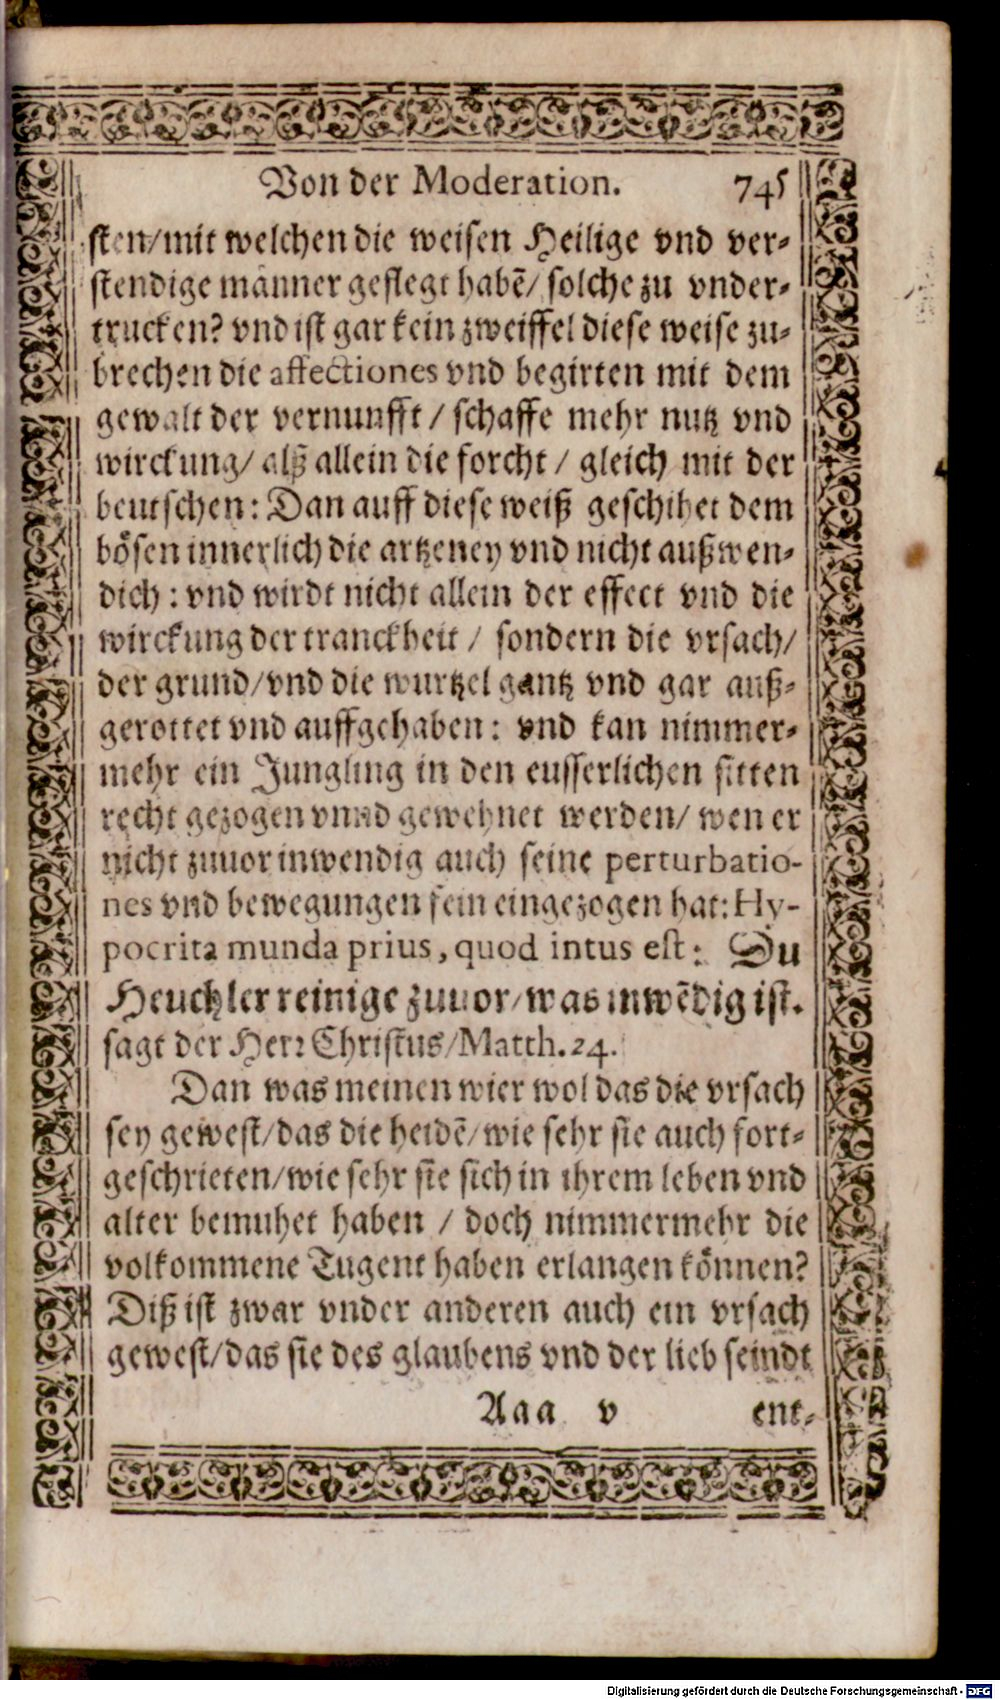 Von der Moderation. 745
sten/mit welchen die weisen Heilige vnd ver-
stendige männer geflegt habẽ/ solche zu vnder-
trucken? vnd ist gar kein zweiffel diese weise zu-
brechen die affectiones vnd begirten mit dem
gewalt der vernunfft / schaffe mehr nutz vnd
wirckung/ alß allein die forcht / gleich mit der
beutschen: Dan auff diese weiß geschihet dem
bösen innerlich die artzeney vnd nicht außwen-
dich: vnd wirdt nicht allein der effect vnd die
wirckung der tranckheit / sondern die vrsach/
der grund/vnd die wurtzel gantz vnd gar auß-
gerottet vnd auffgehaben: vnd kan nimmer-
mehr ein Jungling in den eusserlichen sitten
recht gezogen vnnd gewehnet werden/ wen er
nicht zuuor inwendig auch seine perturbatio-
nes vnd bewegungen fein eingezogen hat: Hy-
pocrita munda prius, quod intus est: Du
Heuchler reinige zuuor/was inwẽdig ist.
sagt der Herr Christus/Matth. 24.
Dan was meinen wier wol das die vrsach
sey gewest/das die heidẽ/wie sehr sie auch fort-
geschrieten/wie sehr sie sich in ihrem leben vnd
alter bemuhet haben / doch nimmermehr die
volkommene Tugent haben erlangen können?
Diß ist zwar vnder anderen auch ein vrsach
gewest/das sie des glaubens vnd der lieb seindt
Aaa v ent-
Digitalisierung gefördert durch die Deutsche Forschungsgemeinschaft - DFG